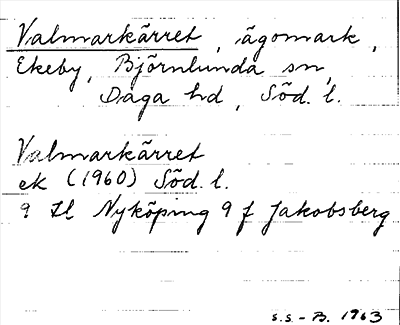 Valmarkärret, ägomark,
Ekeby, Björnlunda sn,
Daga hd, Söd. l.
Valmarkärret
ek (1960) Söd. l.
9 Nyköping 9 f Jakobsberg
S.S.-B. 1963